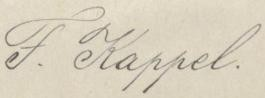 F. Kappel.